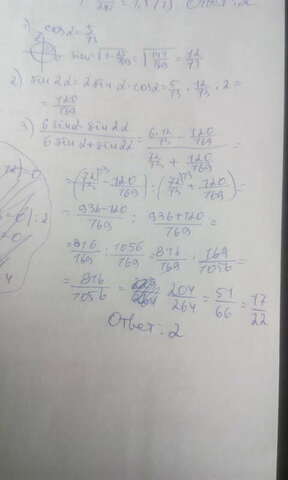 Ответ: 2
1) cosα = 5/13
sin = √1 - 25/169 = √144/169 = 12/13
2) sin 2α = 2 sin α · cos α = 5/13 · 12/13 · 2 =
= 120/169
3) 6 sin α - sin 2α / 6 sin α + sin 2α = 6 · 12/13 - 120/169 / 72/13 + 120/169 =
= (72/13 - 120/169) : (72/13 + 120/169) =
= 936-120/169 : 936+120/169 =
= 816/169 : 1056/169 = 816/169 · 169/1056 =
= 816/1056 = 204/264 = 51/66 = 17/22
Ответ: 2